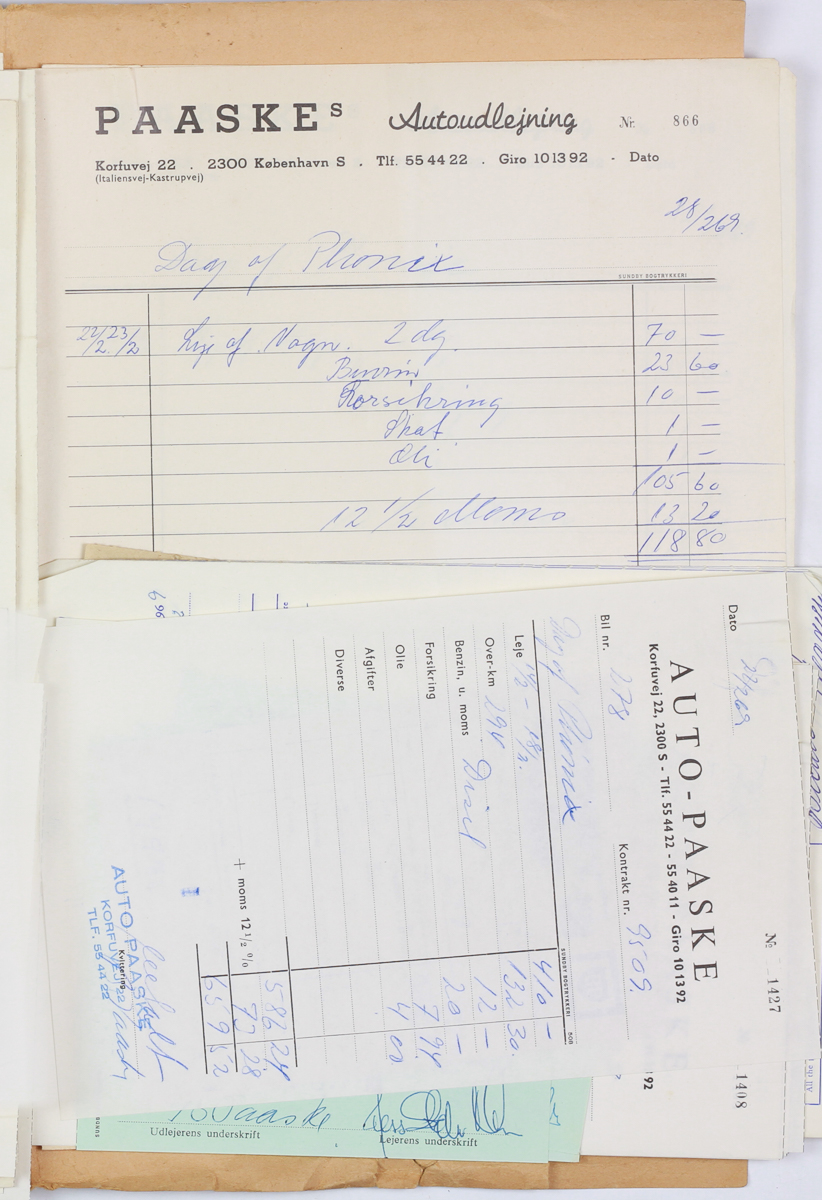 PAASKEs Autoudlejning Nr. 866
Korfuvej 22 . 2300 København S . Tlf. 55 44 22 . Giro 10 13 92 - Dato
(Italiensvej-Kastrupvej)
28/2 69.
Dag of Phonix
SUNDBY BOGTRYKKERI
22/2 23/2 Leje af Vogn. 2 dg. 70 —
Benzin 23 60
Forsikring 10 —
Skat 1 —
Oli 1 —
105 60
12 1/2 Moms 13 20
118 80
№ 1427
AUTO-PAASKE
Korfuvej 22, 2300 S - Tlf. 55 44 22 - 55 40 11 - Giro 10 13 92
Dato 22/2 69
Bil nr. 278 Kontrakt nr. 9509.
SUNDBY BOGTRYKKERI
Leje 410 —
Over-km 294 132 30.
Benzin, u. moms 12 —
Forsikring 20 —
Olie 7 94
Afgifter 4 00
Diverse
586 24
+ moms 12 1/2 % 73 28
659 52
Kvittering
AUTO PAASKE
KORFUVEJ 22
TLF. 55 44 22
1408
92
Paaske
Udlejerens underskrift
Lejerens underskrift